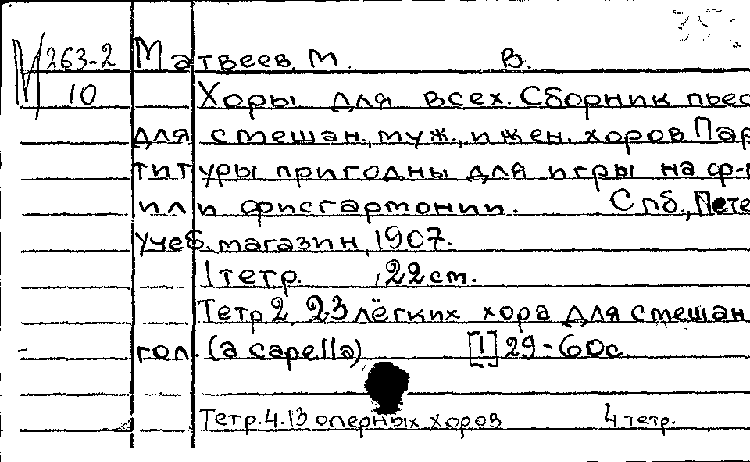 М 263-2 Матвеев, М. В.
10 Хоры для всех. Сборник пьес
для смешан., муж., и жен. хоров Пар
титуры пригодны для игры на ф-п
или фисгармонии. Спб., Пете
учеб. магазин, 1907.
1 тетр. , 22 см.
Тетр 2. 23 лёгких хора для смешан
гол. (a capella) [1] 29-60с
Тетр. 4. 13 оперных хоров 4 тетр.